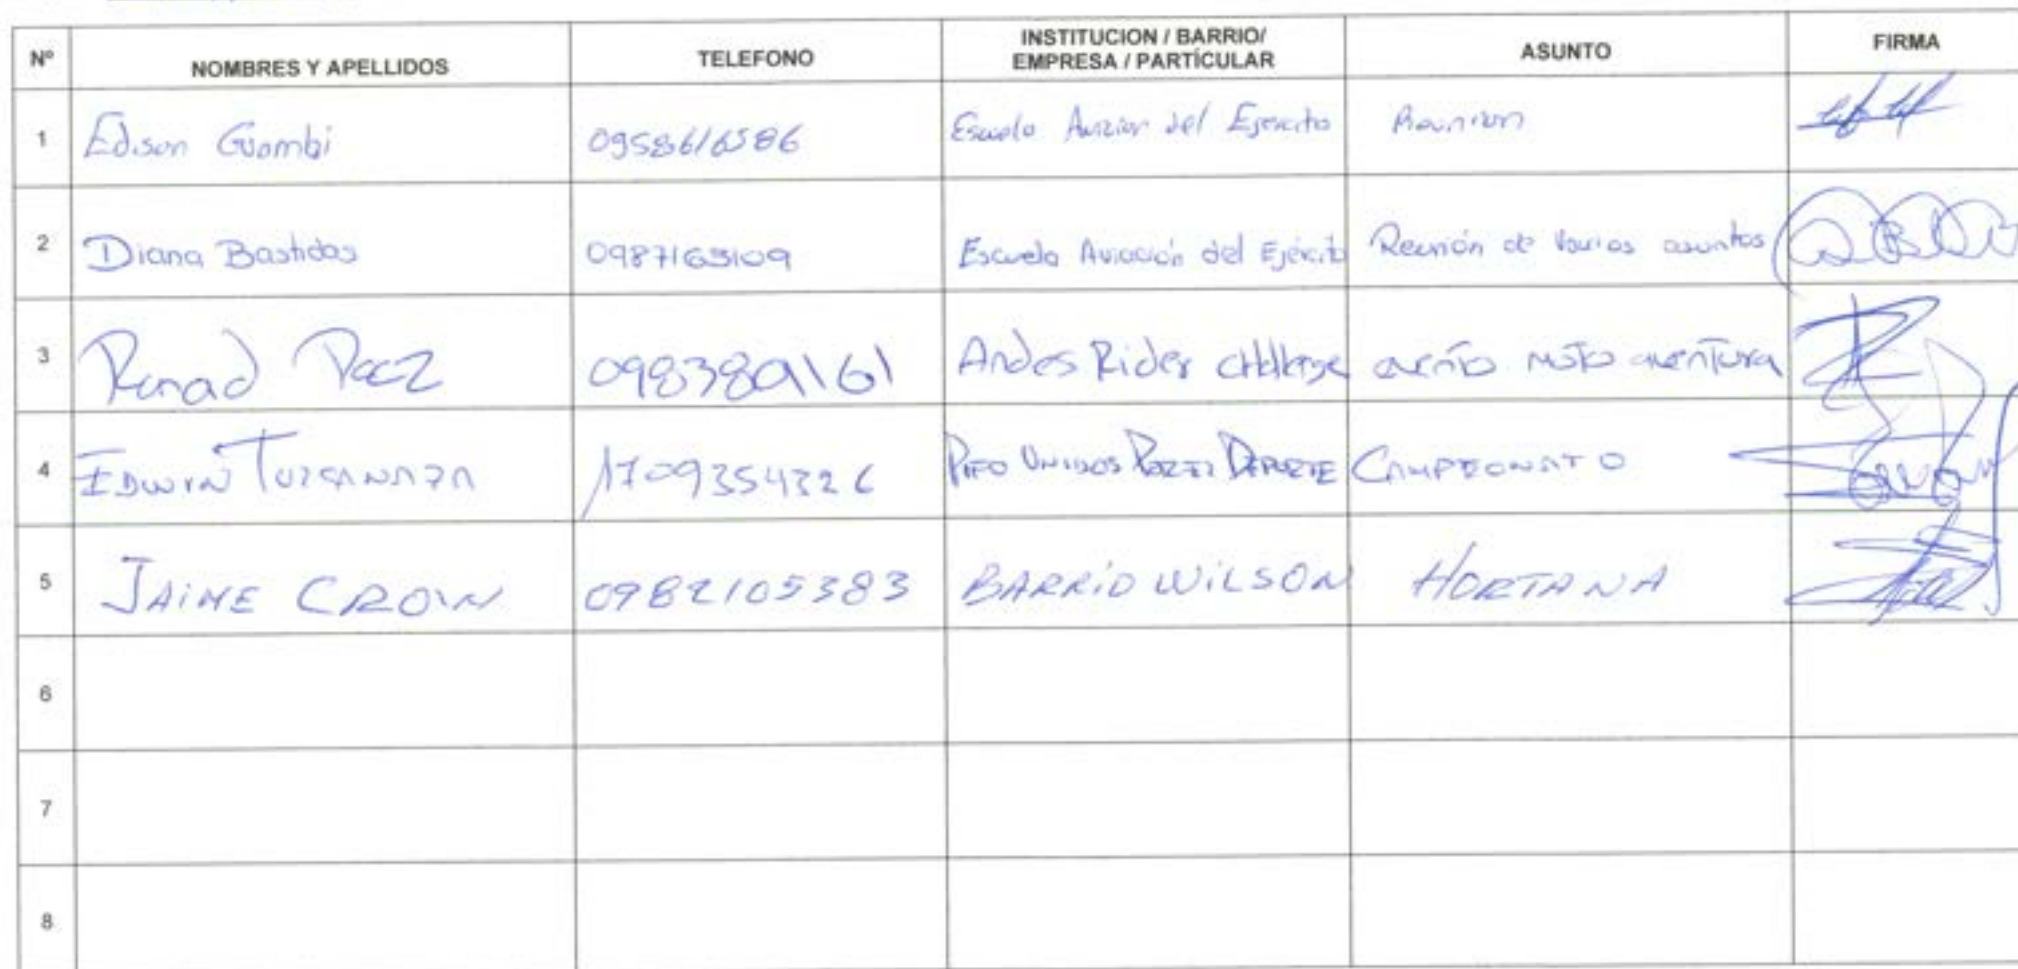 Nº NOMBRES Y APELLIDOS TELEFONO INSTITUCION / BARRIO/ EMPRESA / PARTÍCULAR ASUNTO FIRMA
1 Edison Guambi 0958616586 Escuela Aviación del Ejercito Reunion
2 Diana Bastidas 0987163109 Escuela Aviación del Ejército Reunión de varios asuntos
3 Paez 0983809161 Andes Rider evento moto aventura
4 EDWIN 1709354326 PIFO UNIDOS DEPORTE CAMPEONATO
5 JAIME 0982105383 BARRIO WILSON HORTANA
6
7
8